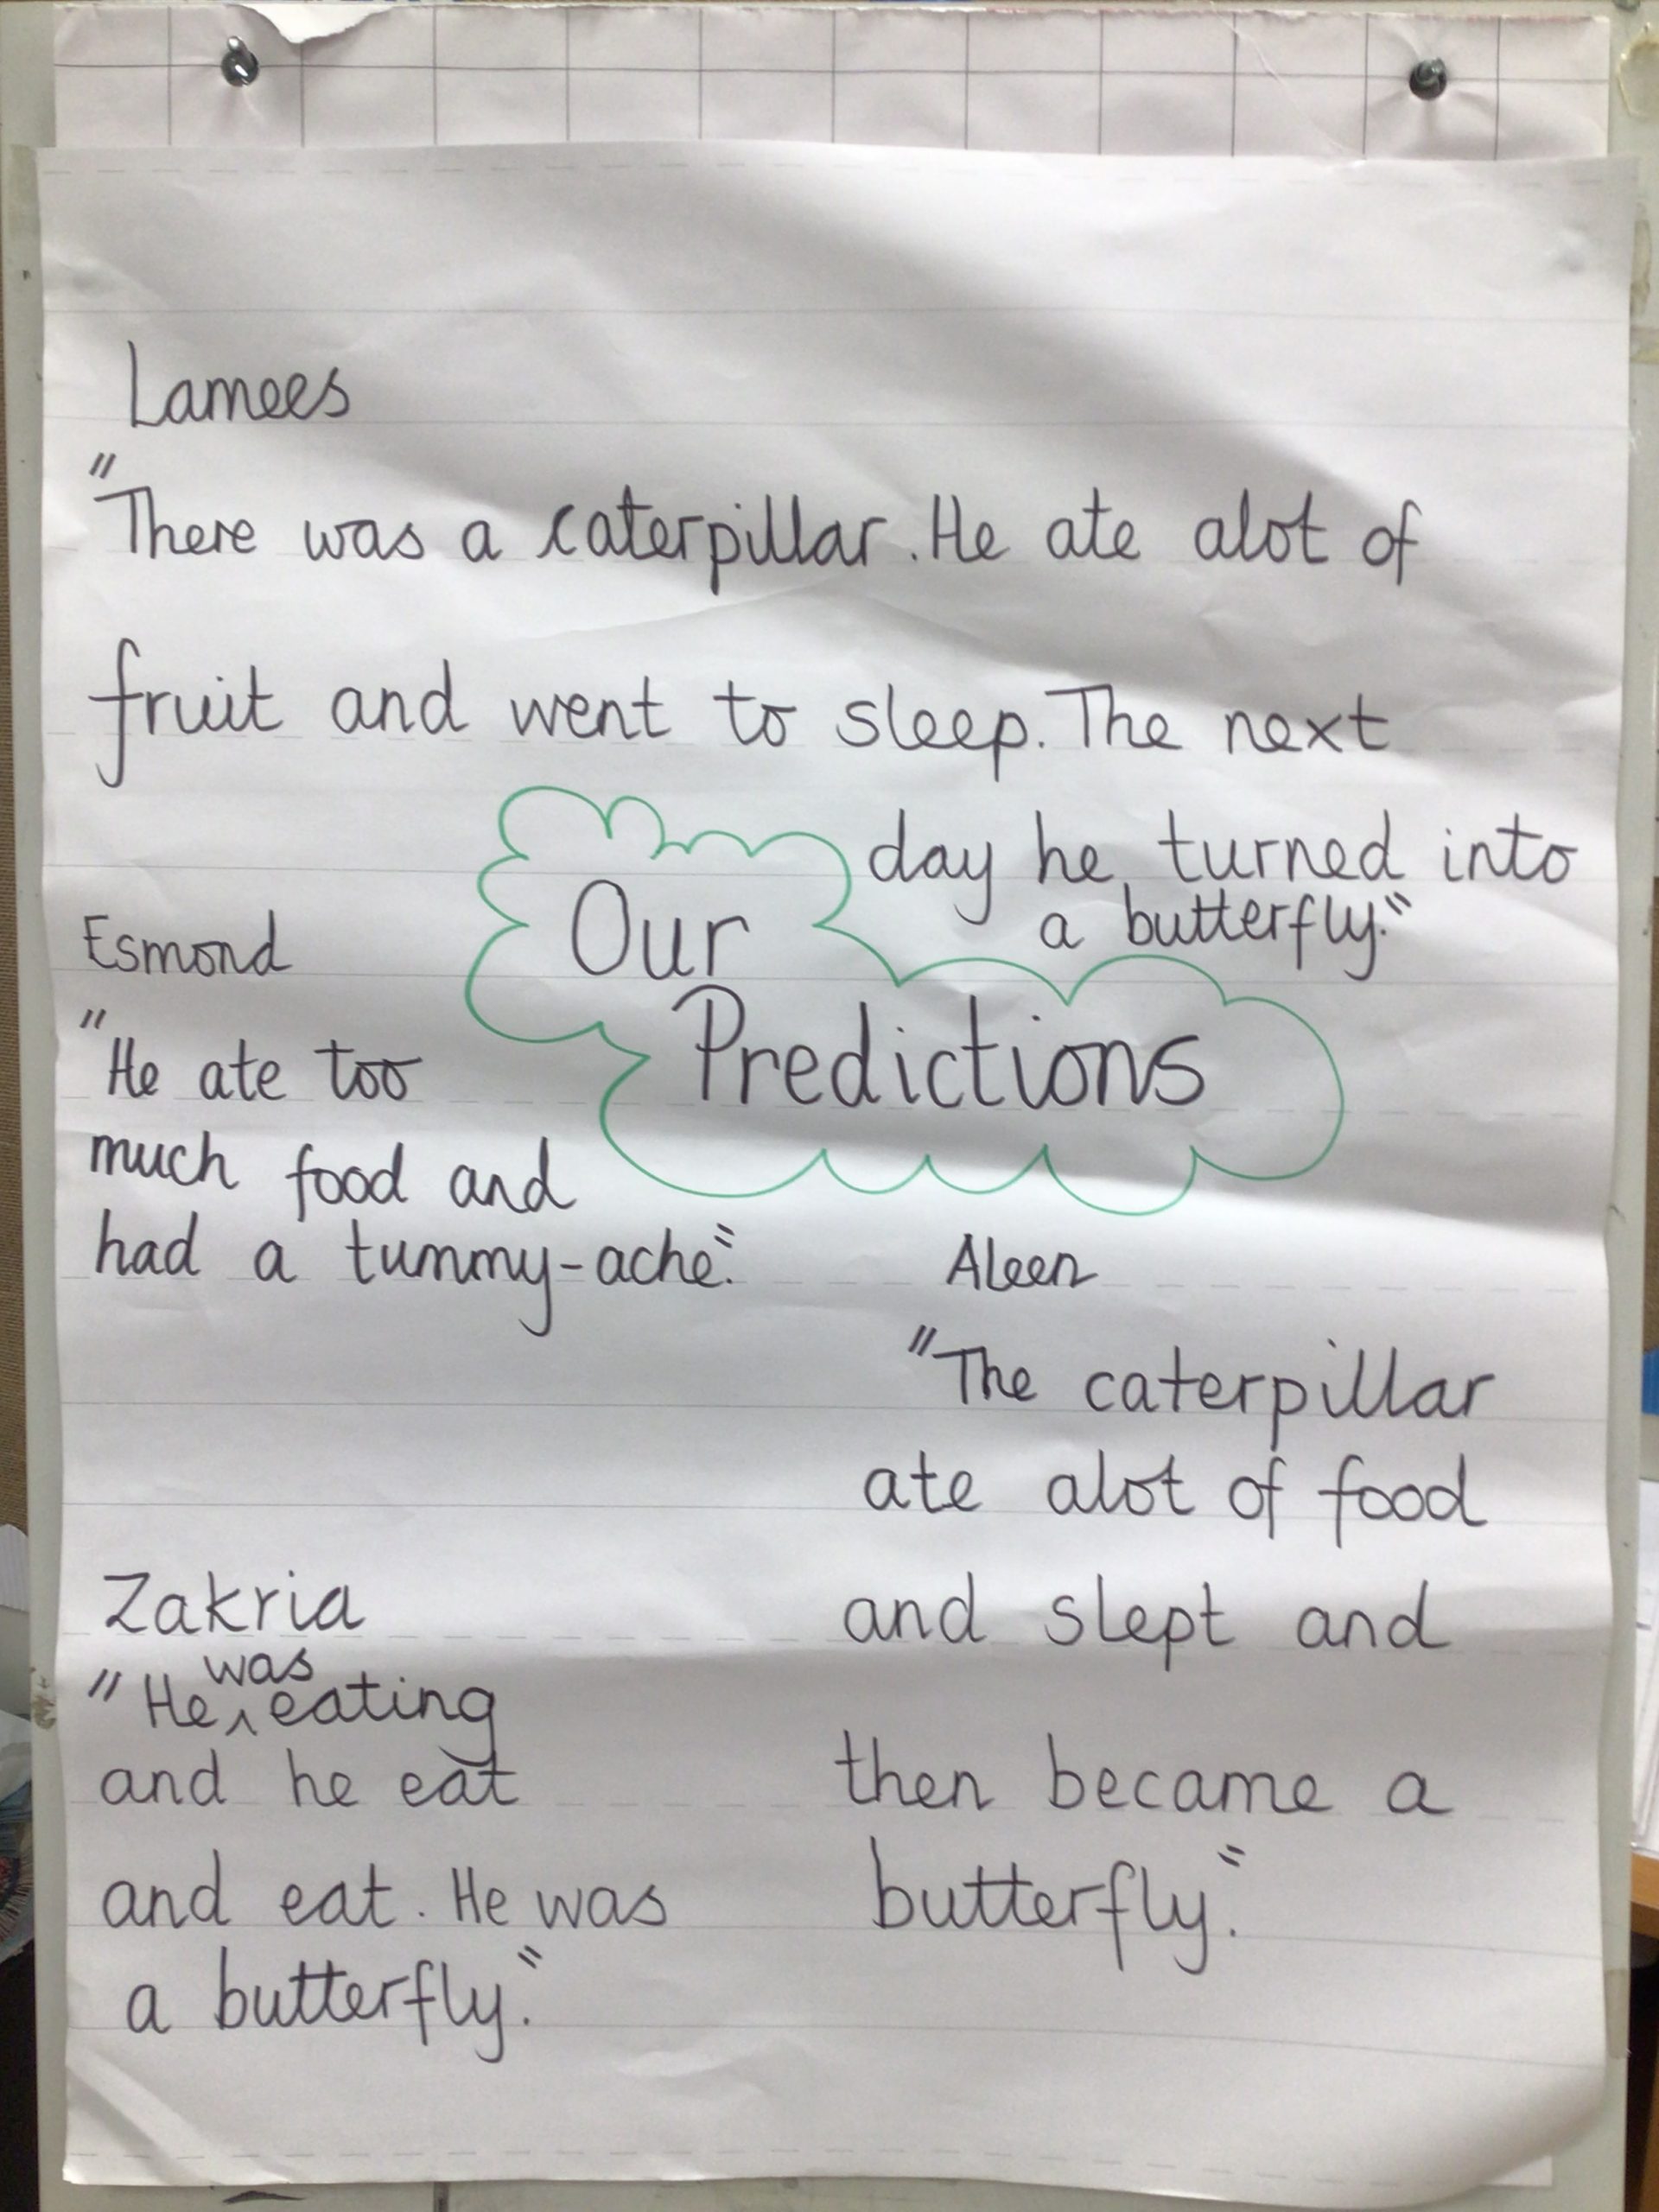 Lamees
"There was a caterpillar. He ate alot of
fruit and went to sleep. The next
day he turned into
a butterfly."
Our
Predictions
Esmond
"He ate too
much food and
had a tummy-ache."
Aleen
"The caterpillar
ate alot of food
and slept and
then became a
butterfly."
Zakria
"He was eating
and he eat
and eat. He was
a butterfly."